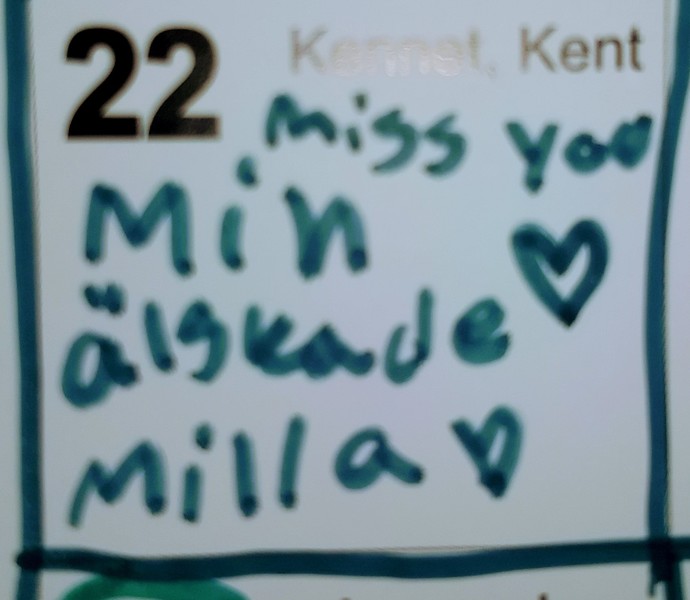 22 Kennet, Kent
Miss you
Min
älskade
Milla